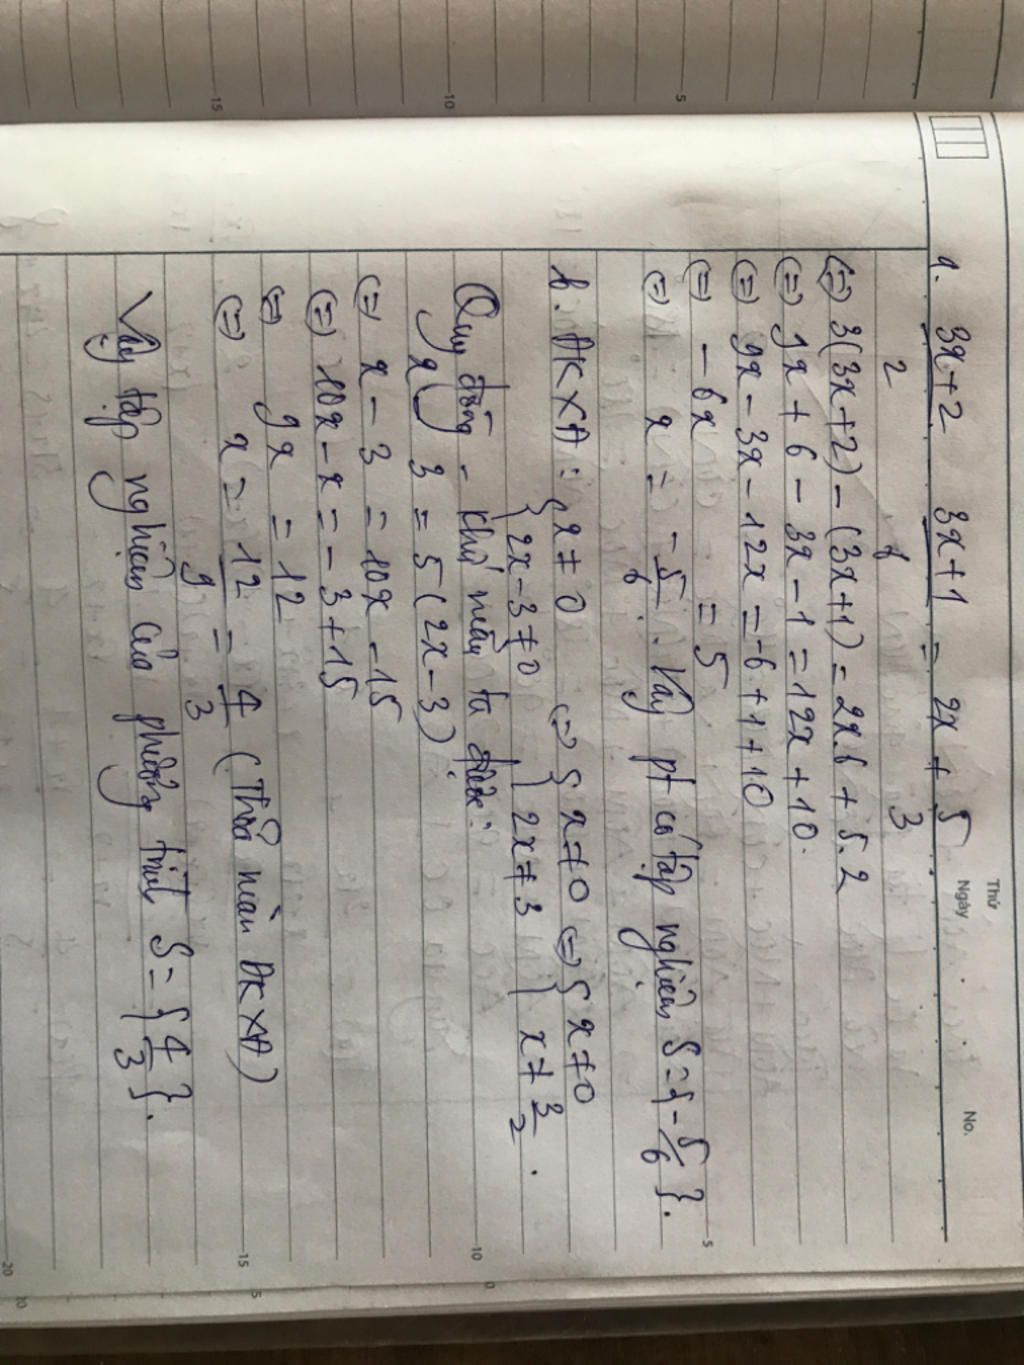 Thứ
Ngày . . No.
a. 3x+2 3x+1 = 2x + 5
2 6 3
(=) 3(3x+2) - (3x+1) = 2x.6 + 5.2
(=) 9x + 6 - 3x - 1 = 12x + 10.
(=) 9x - 3x - 12x = -6 + 1 + 10
(=) - 6x = 5
(=) x = -5/6 . Vậy pt có tập nghiệm S = { -5/6 }.
b. ĐKXĐ : { x ≠ 0 (=) { x ≠ 0 (=) { x ≠ 0
{ 2x - 3 ≠ 0 { 2x ≠ 3 { x ≠ 3/2 .
Quy đồng - khử mẫu ta được:
x 3 = 5 (2x - 3)
(=) x - 3 = 10x - 15
(=) 10x - x = - 3 + 15
(=) 9x = 12
(=) x = 12/9 = 4/3 (Thỏa mãn ĐKXĐ)
Vậy tập nghiệm của phương trình S = { 4/3 }.
5
10
15
5
10
15
20
0
5
10